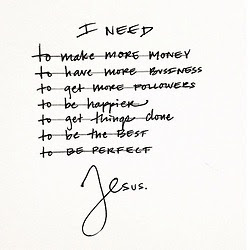 I NEED
to make MORE MONEY
to have MORE BUSINESS
to get MORE FOLLOWERS
to be happier
to get things done
to be the BEST
to BE PERFECT
Jesus.